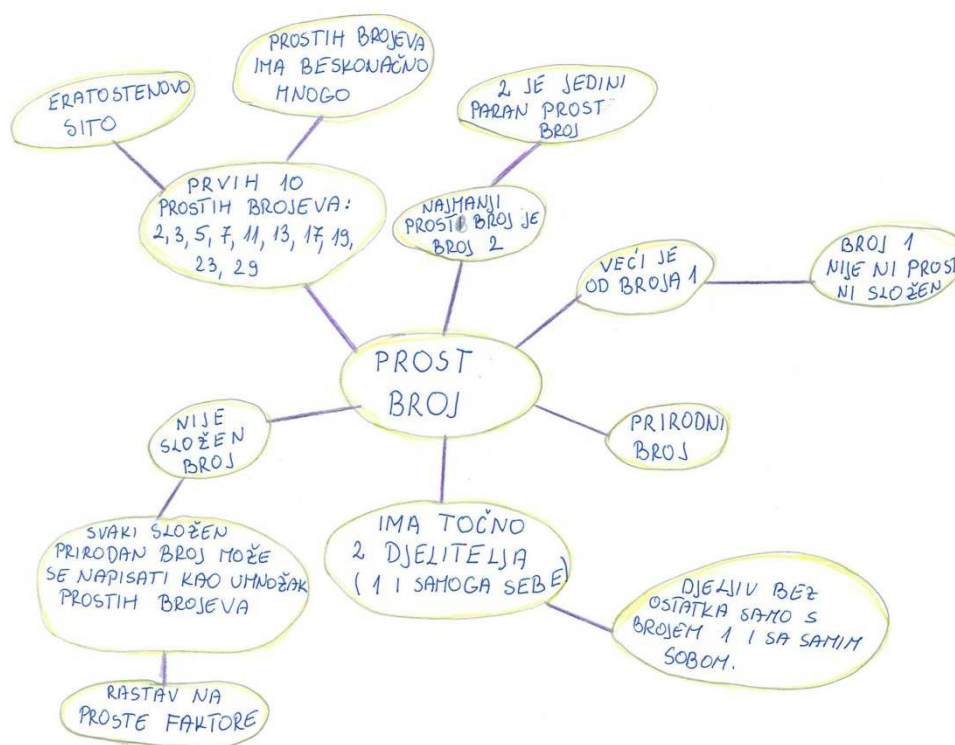 PROSTIH BROJEVA
IMA BESKONAČNO
MNOGO
ERATOSTENOVO
SITO
2 JE JEDINI
PARAN PROST
BROJ
PRVIH 10
PROSTIH BROJEVA:
2, 3, 5, 7, 11, 13, 17, 19,
23, 29
NAJMANJI
PROST BROJ JE
BROJ 2
VEĆI JE
OD BROJA 1
BROJ 1
NIJE NI PROST
NI SLOŽEN
PROST
BROJ
NIJE
SLOŽEN
BROJ
PRIRODNI
BROJ
SVAKI SLOŽEN
PRIRODAN BROJ MOŽE
SE NAPISATI KAO UMNOŽAK
PROSTIH BROJEVA
IMA TOČNO
2 DJELITELJA
(1 I SAMOGA SEBE)
DJELJIV BEZ
OSTATKA SAMO S
BROJEM 1 I SA SAMIM
SOBOM.
RASTAV NA
PROSTE FAKTORE